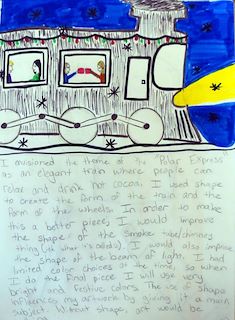 I envisioned the theme of the "Polar Express"
as an elegant train where people can
relax and drink hot cocoa. I used shape
to create the form of the train and the
form of the wheels. In order to make
this a better piece, I would improve
the shape of the smoke tube/chimney
thing (idk what it's called). I would also improve
the shape of the beam of light. I had
limited color choices at the time, so when
I do the final piece I will use very
bright and festive colors. The use of shape
influences my artwork by giving it a main
subject. Without shape, art would be